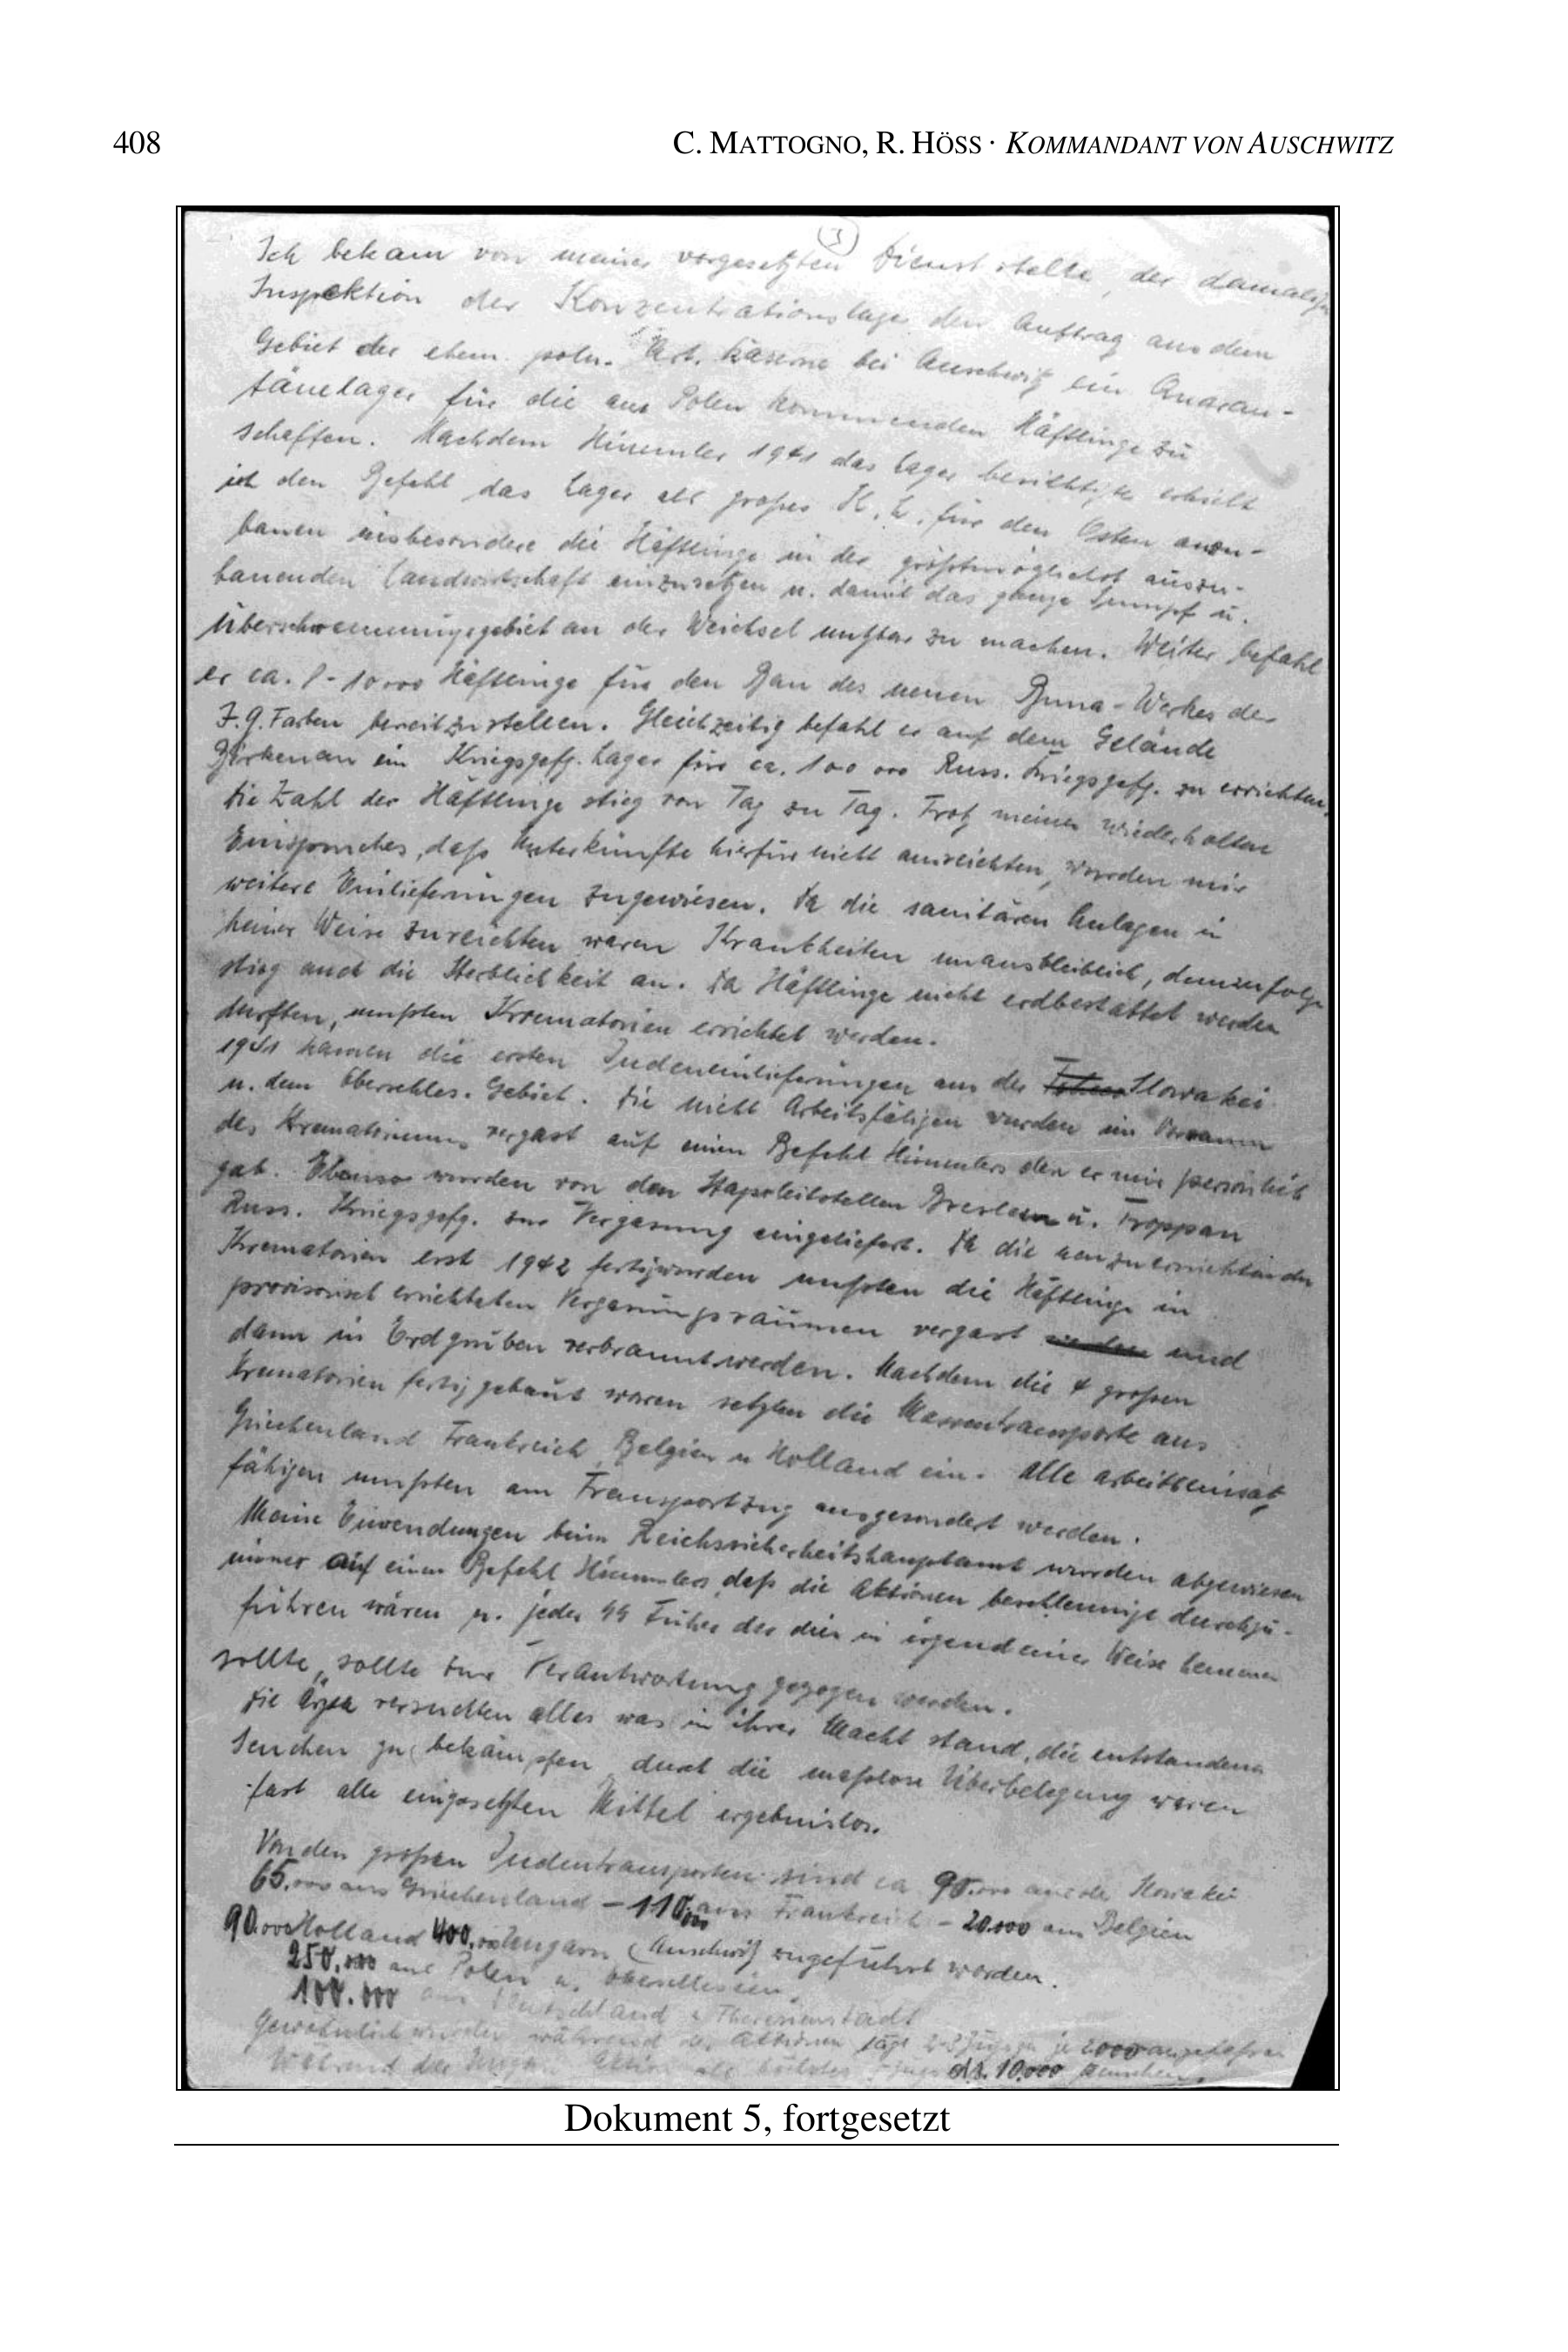 408
C. MATTOGNO, R. HÖSS · KOMMANDANT VON AUSCHWITZ
3
Ich bekam von meiner vorgesetzten Dienststelle, der damaligen
Inspektion der Konzentrationslager den Auftrag aus dem
Gebiet der ehem. poln. Art. Kaserne bei Auschwitz ein Quaran-
tänelager für die aus Polen kommenden Häftlinge zu
schaffen. Nachdem Himmler 1941 das Lager besichtigte erhielt
ich den Befehl das Lager als großes K. L. für den Osten auszu-
bauen insbesondere die Häftlinge in der größtmöglichst auszu-
bauenden Landwirtschaft einzusetzen u. damit das ganze Sumpf u.
Überschwemmungsgebiet an der Weichsel nutzbar zu machen. Weiter befahl
er ca. 8-10000 Häftlinge für den Bau des neuen Buna-Werkes der
I.G. Farben bereitzustellen. Gleichzeitig befahl er auf dem Gelände
Birkenau ein Kriegsgefg. Lager für ca. 100 000 Russ. Kriegsgefg. zu errichten.
Die Zahl der Häftlinge stieg von Tag zu Tag. Trotz meiner wiederholten
Einspruches, daß Unterkünfte hierfür nicht ausreichten, wurden mir
weitere Einlieferungen zugewiesen. Da die sanitären Anlagen in
keiner Weise zureichten waren Krankheiten unausbleiblich, demzufolge
stieg auch die Sterblichkeit an. Da Häftlinge nicht erdbestattet werden
durften, mußten Krematorien errichtet werden.
1941 kamen die ersten Judeneinlieferungen aus der Slowakei
u. dem Oberschles. Gebiet. Die nicht Arbeitsfähigen wurden im Vorraum
des Krematoriums vergast auf einen Befehl Himmlers den er mir persönlich
gab. Ebenso wurden von den Stapoleitstellen Breslau u. Troppau
Russ. Kriegsgefg. zur Vergasung eingeliefert. Da die neuzuerrichtenden
Krematorien erst 1942 fertigwurden mußten die Häftlinge in
provisorisch errichteten Vergasungsräumen vergast und
dann in Erdgruben verbrannt werden. Nachdem die 4 großen
Krematorien fertig gebaut waren setzten die Massentransporte aus
Griechenland Frankreich Belgien u Holland ein. Alle arbeitseinsatz
fähigen mußten am Transportzug ausgesondert werden.
Meine Einwendungen beim Reichssicherheitshauptamt wurden abgewiesen
immer auf einen Befehl Himmlers, daß die Aktionen beschleunigt durchzu-
führen wären u. jeder SS Führer der dies in irgendeiner Weise hemmen
sollte, sollte zur Verantwortung gezogen werden.
Die Ärzte versuchten alles was in ihrer Macht stand, die entstandenen
Seuchen zu bekämpfen, durch die maßlose Überbelegung waren
fast alle eingesetzten Mittel ergebnislos.
Von den großen Judentransporten sind ca 90.000 aus der Slowakei
65.000 aus Griechenland – 110.000 aus Frankreich – 20.000 aus Belgien
90.000 Holland 400.000 Ungarn (Auschwitz zugeführt worden.
250.000 aus Polen u. Oberschlesien.
100.000 aus Deutschland u Theresienstadt
Gewöhnlich wurden während der Aktionen tägl 2-3 Züge zu je 2000 angefahren
Während der Ungarn Aktion als höchstes 5 Züge d.s. 10.000 Menschen.
Dokument 5, fortgesetzt